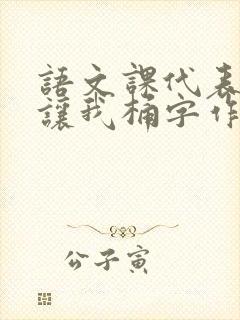 語文課代表
讓我桶字作
公子寅